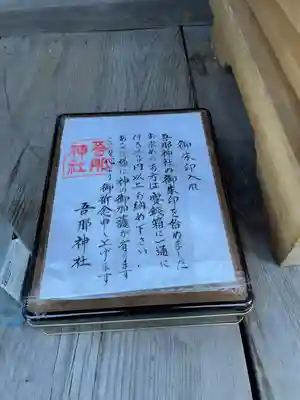 御朱印入れ
吾那神社の御朱印を始めました
お求めの方は賽銭箱に一通に
付き
円以上お納め下さい。
あなた様に神の御加護が有ります
御祈念申し上げます
吾那神社
吾那
神社